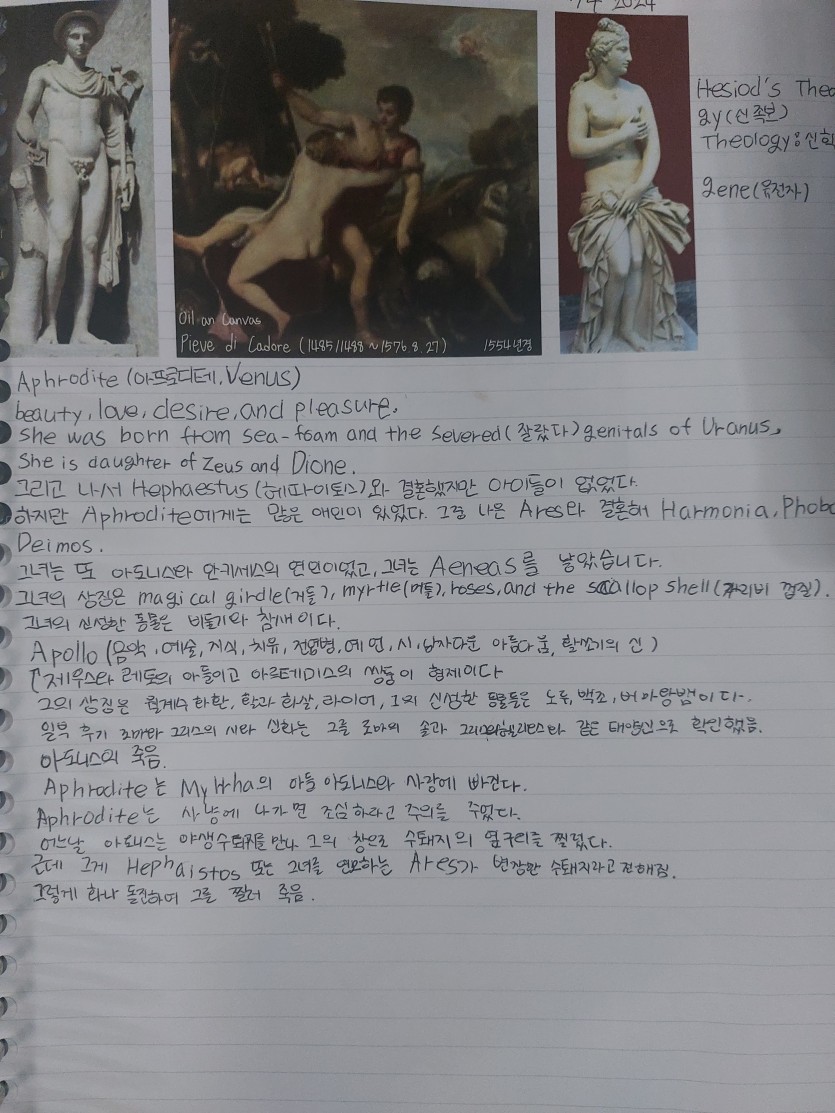 2024
Hesiod's Theo
gy(신 족보)
Theology:신학
gene(유전자)
Oil an Canvas
Pieve di Cadore (1485/1488 ~ 1576. 8. 27) 1554년경
Aphrodite (아프로디테, Venus)
beauty, love, desire, and pleasure.
She was born from sea-foam and the severed(잘랐다) genitals of Uranus,
She is daughter of Zeus and Dione.
그리고 나서 Hephaestus (헤파이토스)와 결혼했지만 아이들이 없었다.
하지만 Aphrodite에게는 많은 애인이 있었다. 그중 나온 Ares와 결혼해 Harmonia, Phobo
Deimos.
그녀는 또 아도니스와 안키세스의 연인이었고, 그녀는 Aeneas를 낳았습니다.
그녀의 상징은 magical girdle(거들), myrtle(머틀), roses, and the scallop shell(가리비 껍질).
그녀의 신성한 동물은 비둘기와 참새이다.
Apollo (음악, 예술, 지식, 치유, 전염병, 예언, 시, 남자다운 아름다움, 활쏘기의 신)
제우스와 레토의 아들이고 아르테미스의 쌍둥이 형제이다
그의 상징은 월계수 화환, 활과 화살, 라이어, 그의 신성한 동물들은 노루, 백조, 비단뱀이다.
일부 후기 로마와 그리스의 시와 신화는 그를 로마의 솔과 그리스의 헬리오스와 같은 태양신으로 확인했음.
아도니스의 죽음.
Aphrodite는 Myrrha의 아들 아도니스와 사랑에 빠진다.
Aphrodite는 사냥에 나가면 조심하라고 주의를 주었다.
어느날 아도니스는 야생수퇘지를 만나 그의 창으로 수퇘지의 옆구리를 찔렀다.
근데 그게 Hephaistos 또는 그녀를 연모하는 Ares가 변장한 수퇘지라고 전해짐.
그렇게 화나 돌진하여 그를 찔러 죽음.